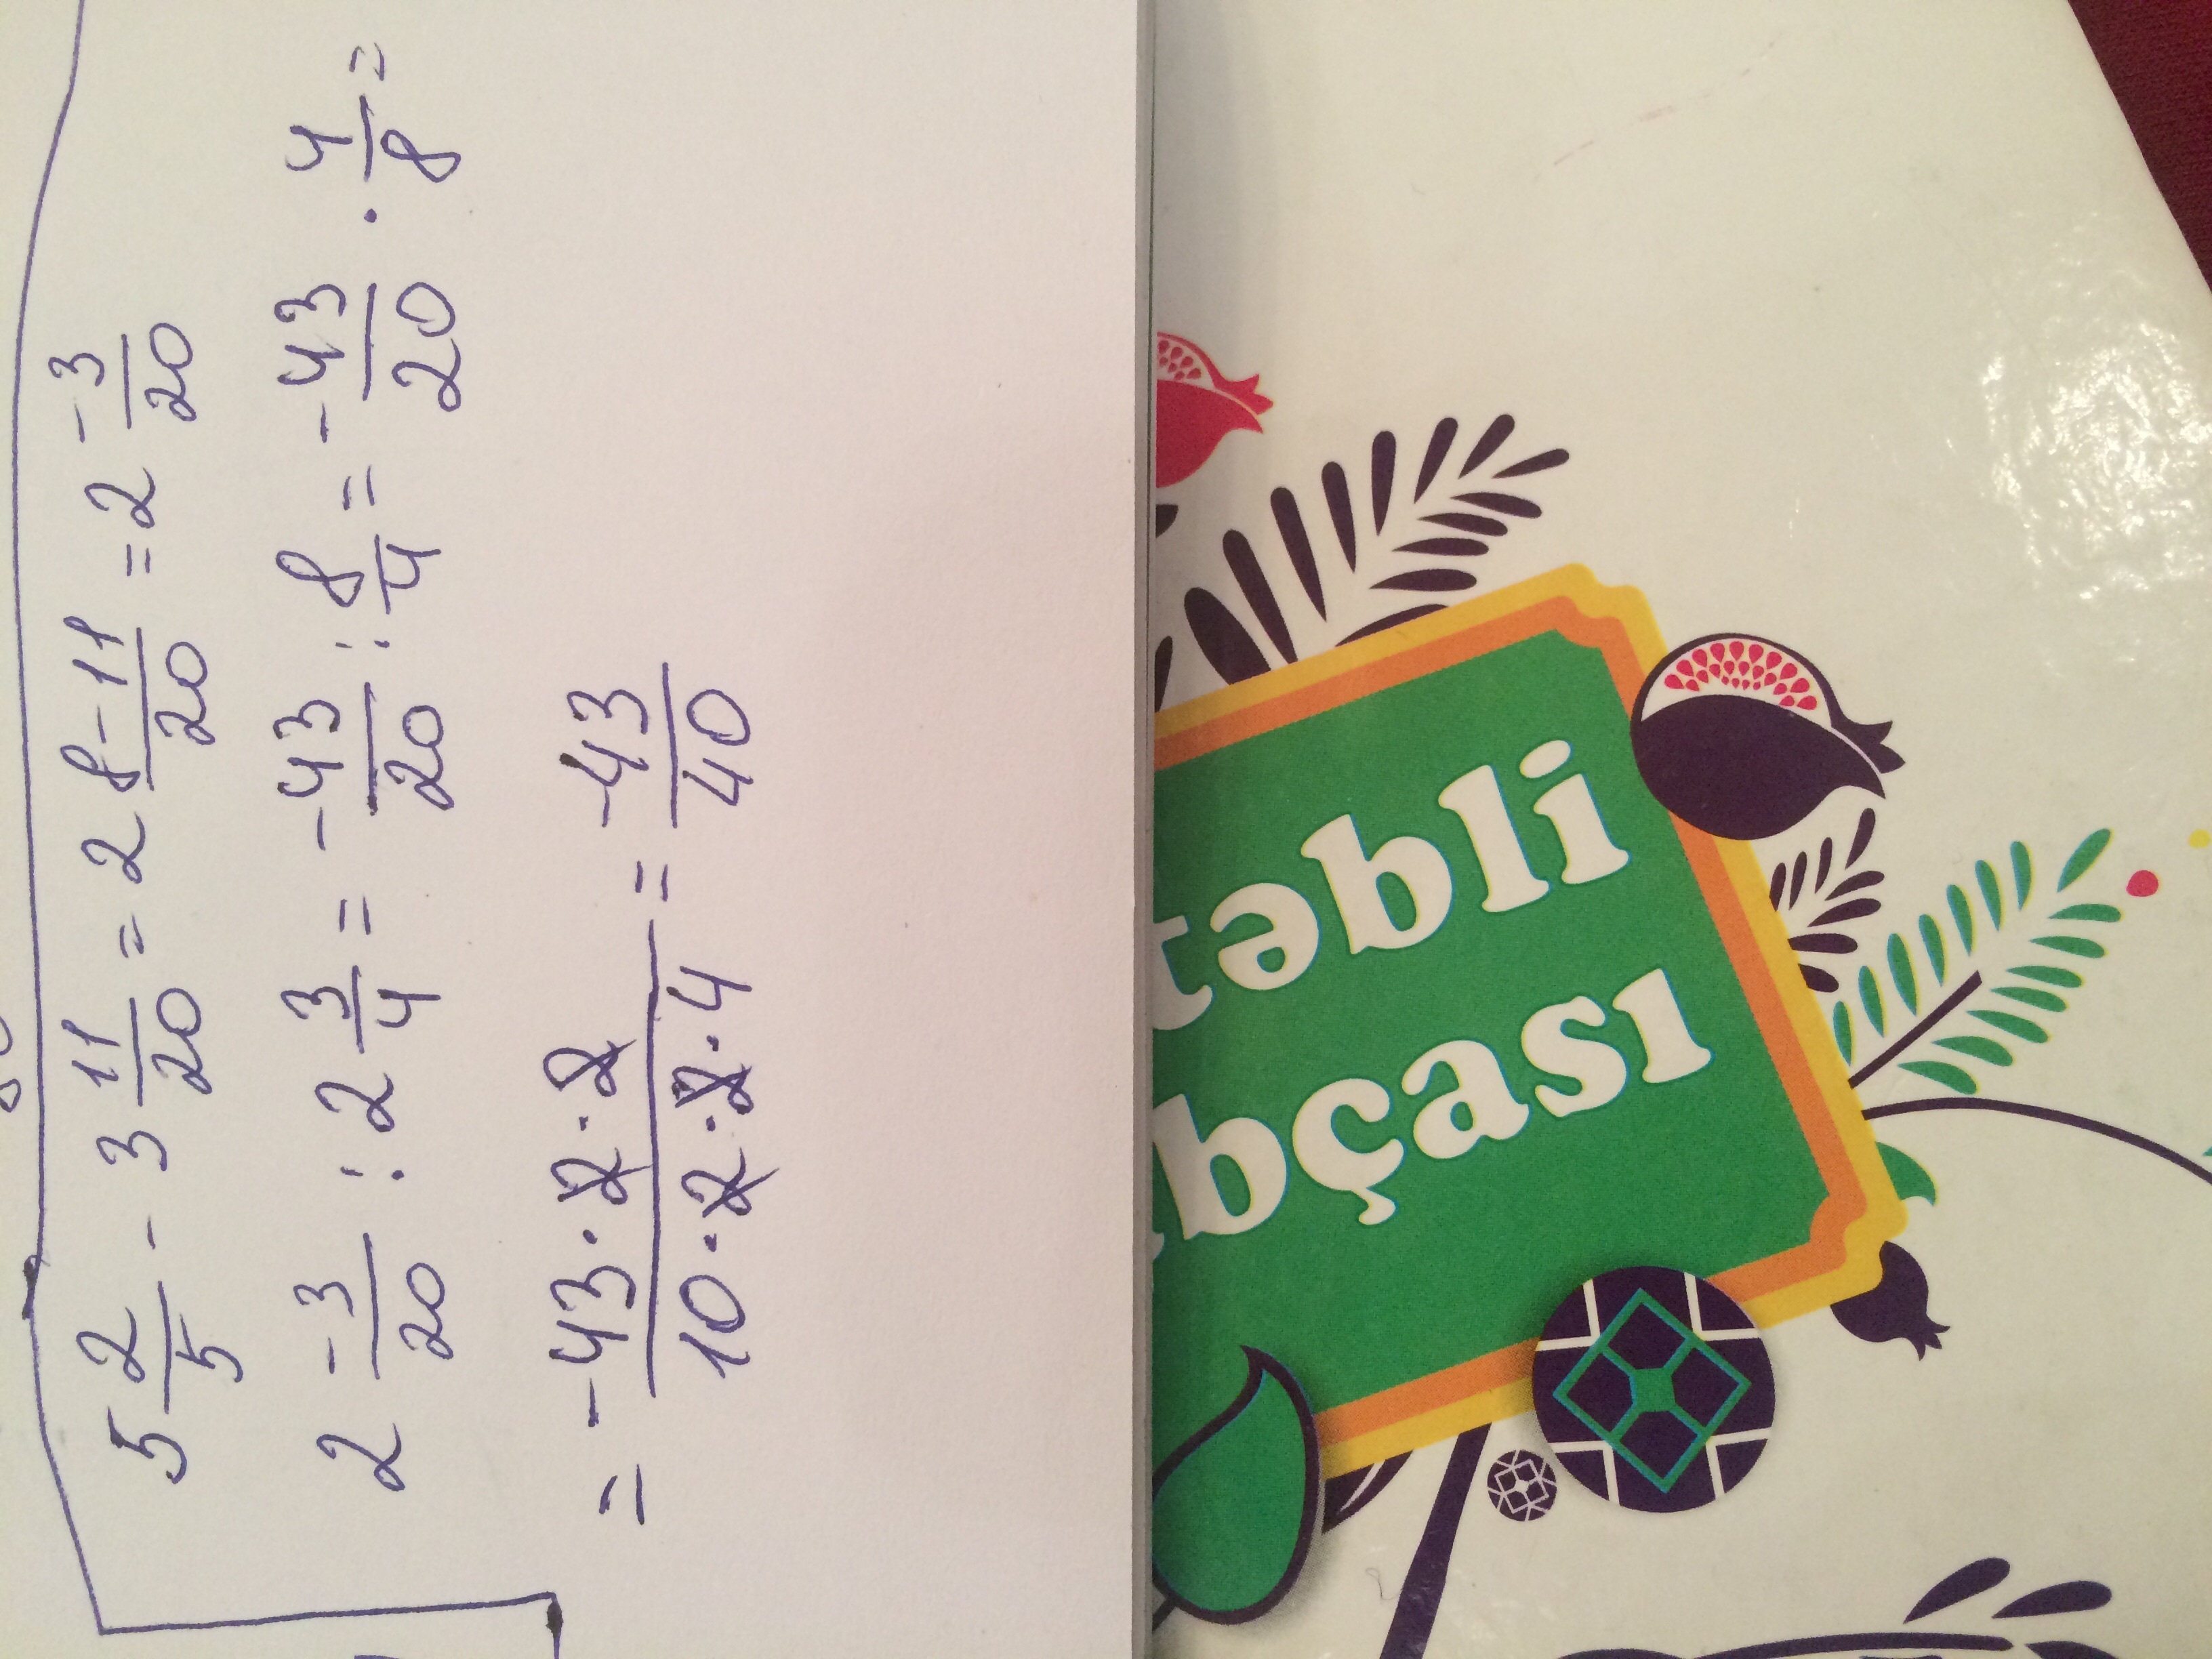 5 2/5 - 3 11/20 = 2 8-11/20 = 2 -3/20
2 -3/20 : 2 3/4 = -43/20 : 8/4 = -43/20 · 4/8 =
= -43·2·2/10·2·2·4 = -43/40
təbli
bçası